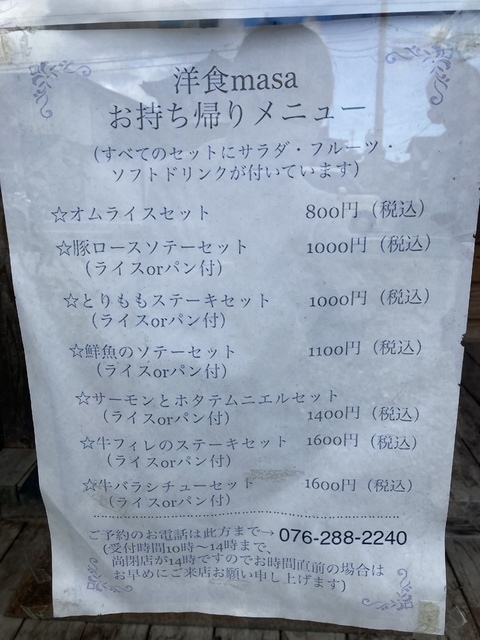 洋食masa
お持ち帰りメニュー
(すべてのセットにサラダ・フルーツ・
ソフトドリンクが付いています)
☆オムライスセット 800円(税込)
☆豚ロースソテーセット 1000円(税込)
(ライスorパン付)
☆とりももステーキセット 1000円(税込)
(ライスorパン付)
☆鮮魚のソテーセット 1100円(税込)
(ライスorパン付)
☆サーモンとホタテムニエルセット
(ライスorパン付) 1400円(税込)
☆牛フィレのステーキセット 1600円(税込)
(ライスorパン付)
☆牛バラシチューセット 1600円(税込)
(ライスorパン付)
ご予約のお電話は此方まで→ 076-288-2240
(受付時間10時〜14時まで、
尚閉店が14時ですのでお時間直前の場合は
お早めにご来店お願い申し上げます)